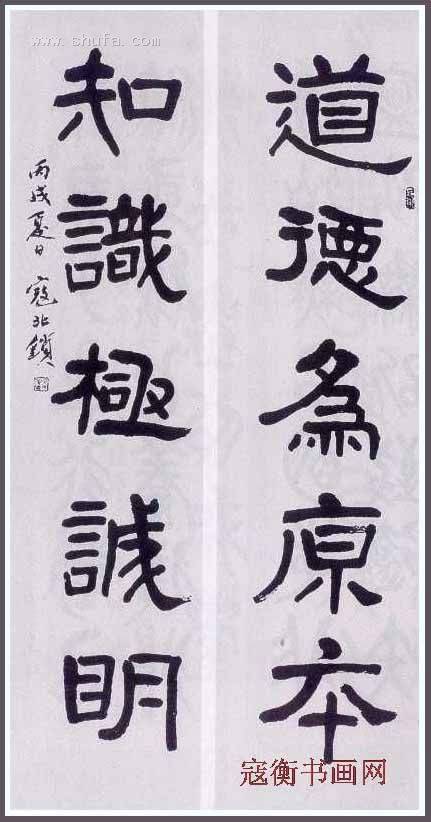 www.shufa.com
道德為原本
知識極誠明
丙戌夏日 寇北鎖
寇衡书画网